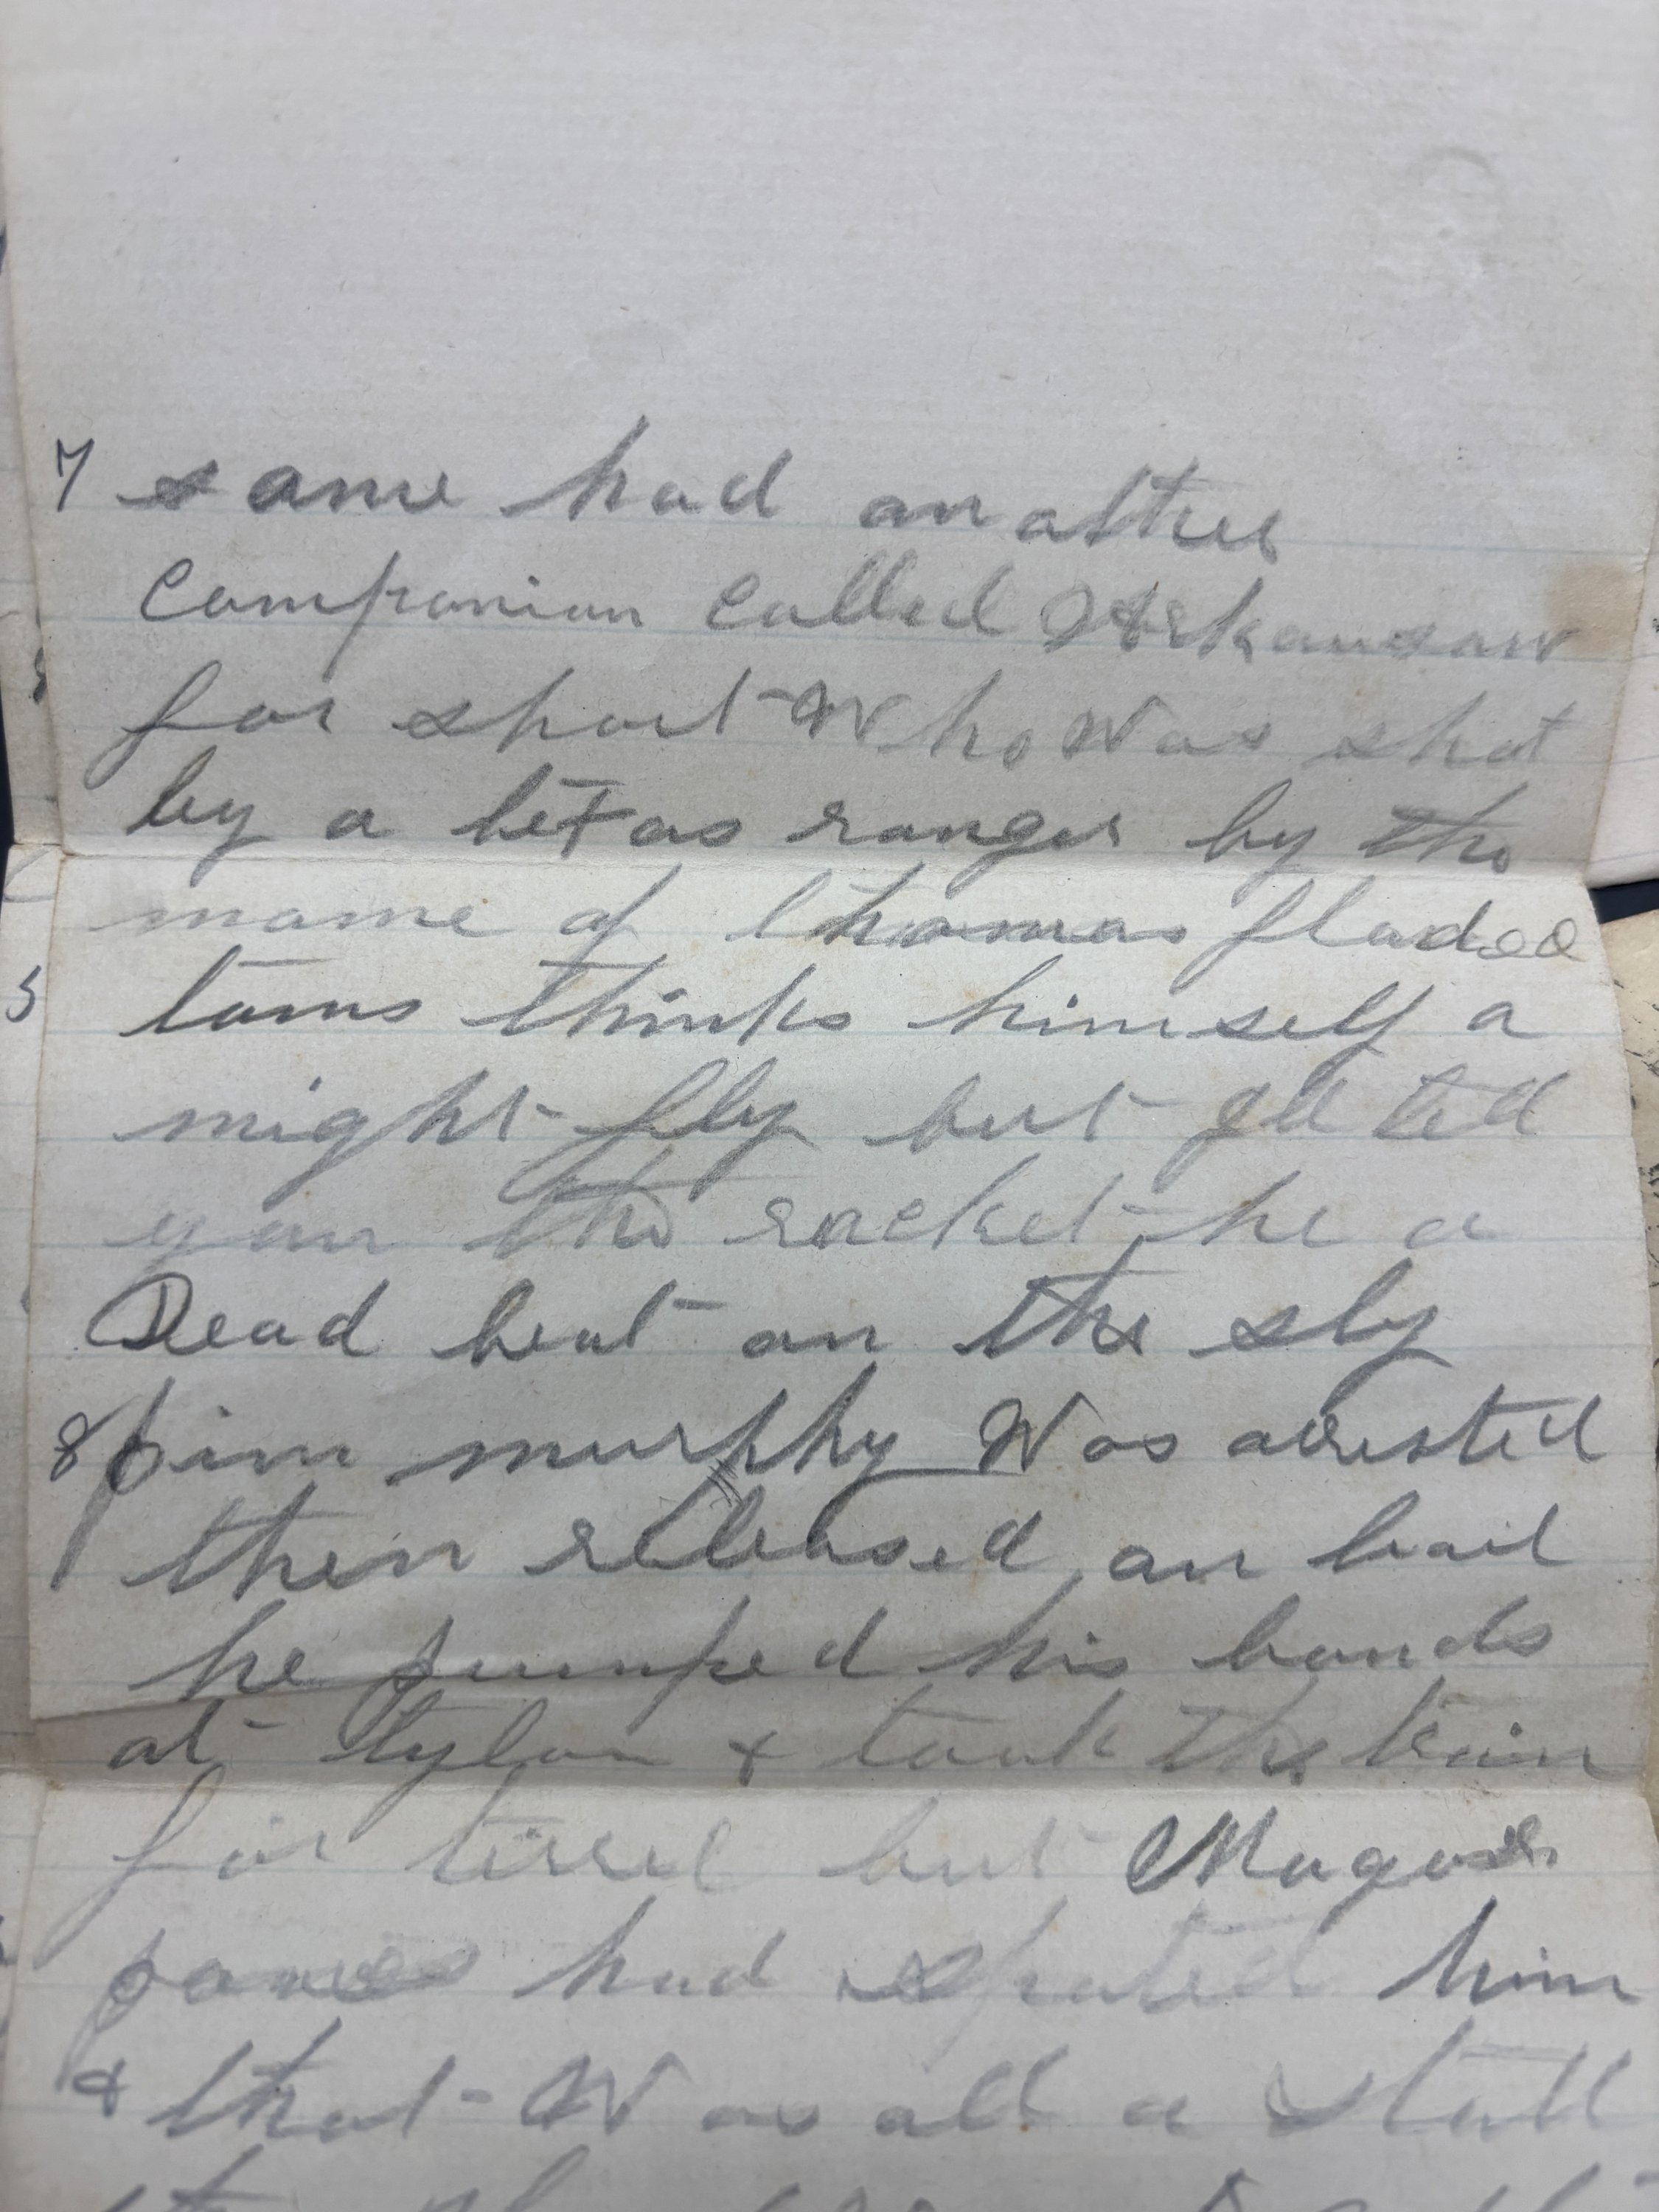 7 same had an other
Companion Called Arkansaw
for short Who Was shot
by a texas ranger by the
name of thomas flud oo
toms thinks himself a
might fly but Ill tell
you the racket he a
Dead beat on the sly
8 jim murphy Was arrested
then released on bail
he jumped his bonds
at tylor & took the train
for terrel but Magor
jones had spoted him
& that Was all a stall